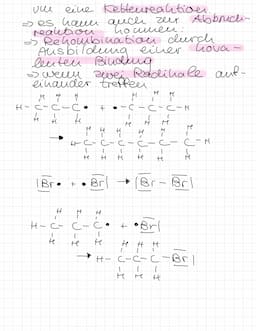 um eine Kettenreaktion
→ es kann auch zur Abbruch-
reaktion kommen:
→ Rekombination durch
Ausbildung einer kova-
lenten Bindung
→ wenn zwei Radikale auf-
einander treffen
H H H H H H
H-C-C-C• + •C-C-C-H
H H H H H H
→ H H H H H H
H-C-C-C-C-C-C-H
H H H H H H
|Br• + •Br| → |Br-Br|
H H H
H-C-C-C• + •Br|
H H H
→ H H H
H-C-C-C-Br|
H H H